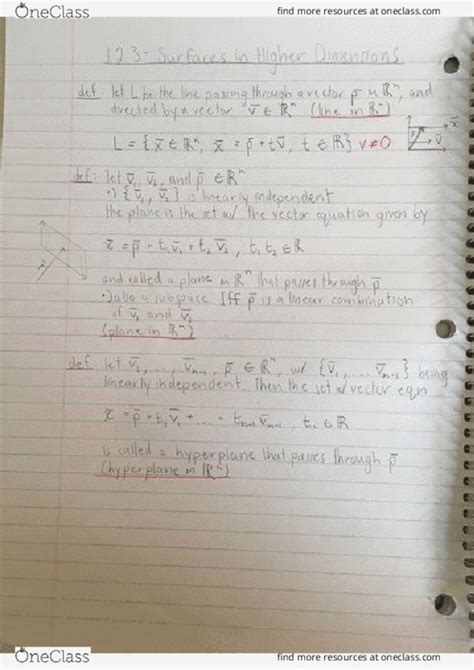 OneClass
find more resources at oneclass.com
1.2.3 - Surfaces in Higher Dimensions
def: let L be the line passing through a vector p̄ in ℝⁿ, and
directed by a vector v̄ ∈ ℝⁿ (line in ℝⁿ)
L = { x̄ ∈ ℝⁿ; x̄ = p̄ + tv̄, t ∈ ℝ } v≠0
def: let v̄₁, v̄₂, and p̄ ∈ ℝⁿ
•) { v̄₁, v̄₂ } is linearly independent
the plane is the set w/ the vector equation given by
x̄ = p̄ + t₁v̄₁ + t₂v̄₂, t₁ t₂ ∈ ℝ
and called a plane in ℝⁿ that passes through p̄
•) also a subspace Iff p̄ is a linear combination
of v̄₁ and v̄₂
(plane in ℝⁿ)
def: let v̄₁, ..., v̄ₙ₋₁, p̄ ∈ ℝⁿ, w/ { v̄₁, ... v̄ₙ₋₁ } being
linearly independent. Then the set w/ vector eqn
x̄ = p̄ + t₁v̄₁ + ... + tₙ₋₁v̄ₙ₋₁, ∈ ℝ
is called a hyperplane that passes through p̄
(hyperplane in ℝⁿ)
OneClass
find more resources at oneclass.com